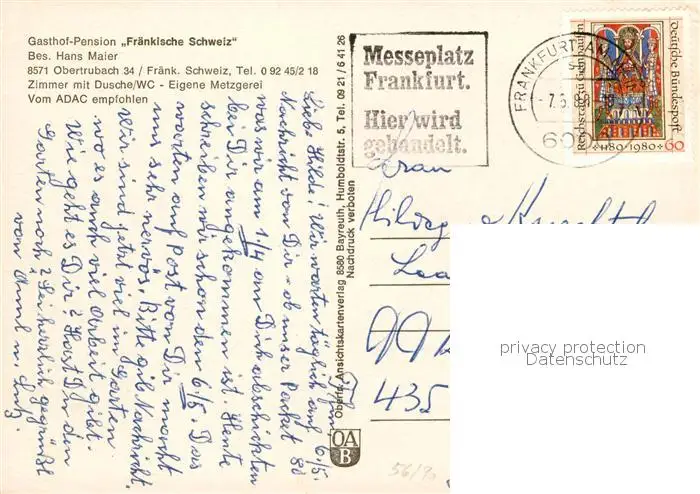 Gasthof-Pension „Fränkische Schweiz"
Bes. Hans Maier
8571 Obertrubach 34 / Fränk. Schweiz, Tel. 0 92 45/2 18
Zimmer mit Dusche/WC - Eigene Metzgerei
Vom ADAC empfohlen
6/5.
Liebe Hilde! Wir warten täglich auf
Nachricht von Dir – ob unser Packet
was wir am 1/4 an Dich abschickten
bei Dir angekommen ist. Heute
schreiben wir schon den 6/5. Das
warten auf Post von Dir macht
uns sehr nervös. Bitte gib Nachricht.
Wir sind jetzt viel im Garten
wo es auch viel Arbeit gibt.
Wie geht es Dir? Hast Du den
Garten noch? Sei herzlich gegrüßt
von u.
Oberfr. Ansichtskartenverlag 8580 Bayreuth, Humboldtstr. 5, Tel. 09 21 / 6 41 26
Nachdruck verboten
OA
B
Messeplatz
Frankfurt.
Hier wird
gehandelt.
FRANKFURT AM
-7.5.8
60
Reichstag zu Gelnhausen
Deutsche Bundespost
1180-1980
60
Frau
435
56/90
privacy protection
Datenschutz